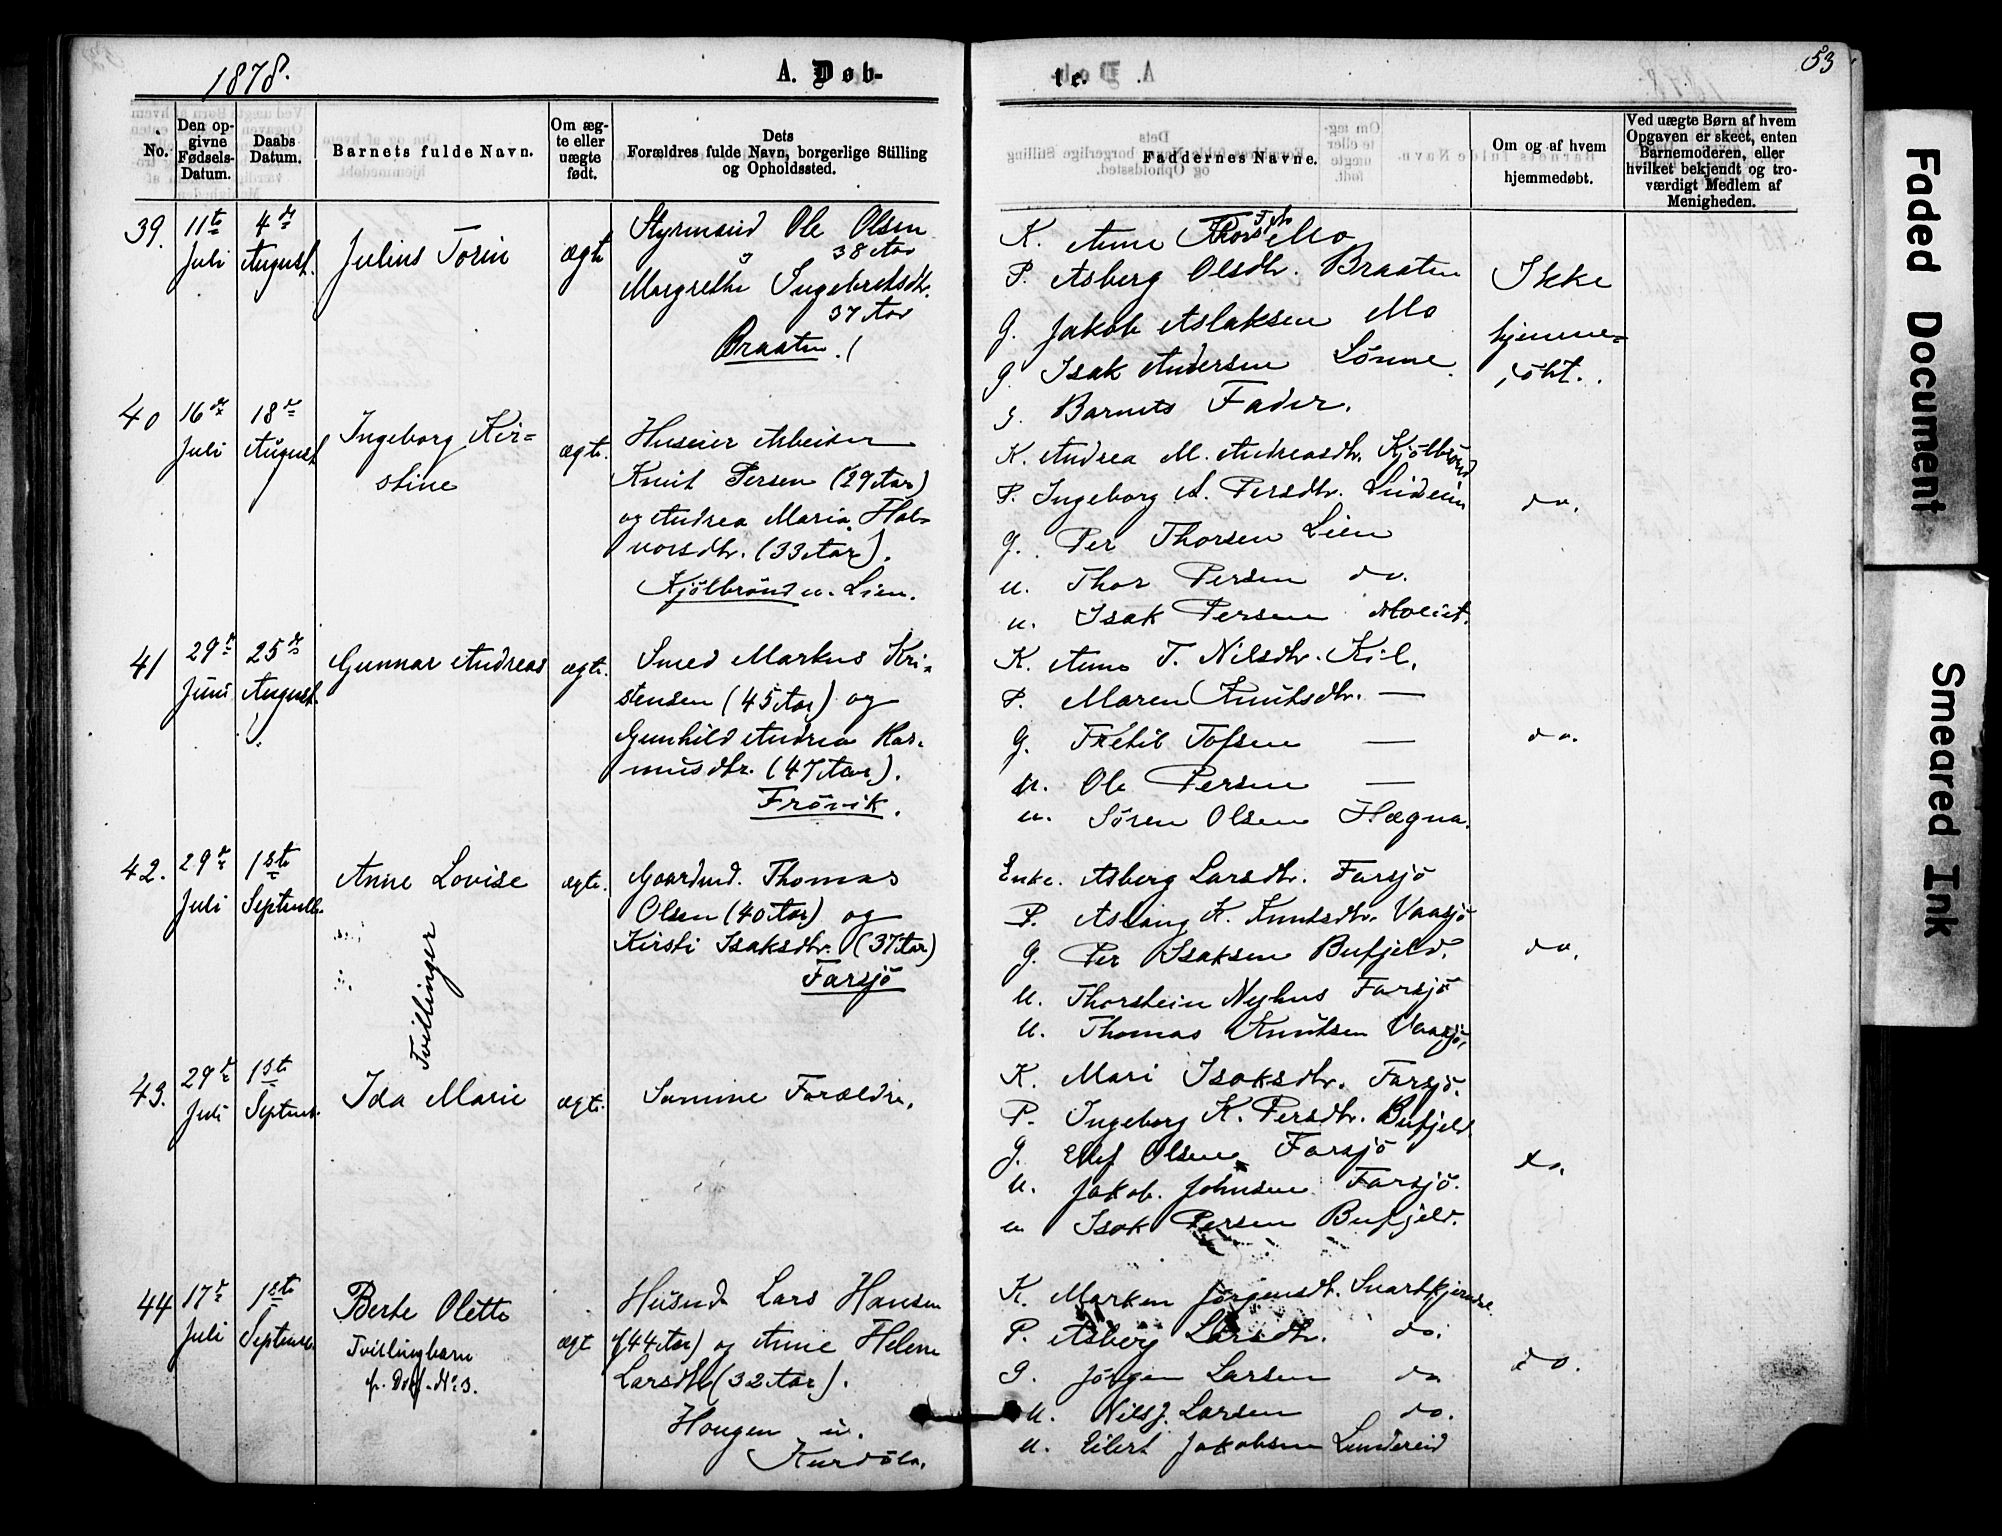 1878.
A. Døb-
te.
53
No.
Den op-
givne
Fødsels-
Datum.
Daabs
Datum.
Barnets fulde Navn.
Om æg-
te eller
uægte
født.
Dets
Forældres fulde Navn, borgerlige Stilling
og Opholdssted.
Faddernes Navne.
Om og af hvem
hjemmedøbt.
Ved uægte Børn af hvem
Opgaven er skeet, enten
Barnemoderen, eller
hvilket bekjendt og tro-
værdigt Medlem af
Menigheden.
39.
11te
Juli
4de
August.
Julius Torin
ægte
Styrmand Ole Olsen
38 Aar
Margrethe Ingebretsdtr.
37 Aar
Braaten.
K. Anne Mo
P. Asberg Olsdtr. Braaten
G. Jakob Aslaksen Mo
G. Isak Andersen Lønne
G Barnets Fader.
Ikke
hjemme=
døbt.
40
16de
Juli
18de
August
Ingeborg Kir=
stine
ægte.
Huseier Arbeider
Knut Persen (29 Aar)
og Andrea Maria Hal-
vorsdtr. (33 Aar).
Kjølbrønd u. Lien.
K. Andrea M. Andreasdtr. Kjølbrønd
P. Ingeborg A. Persdtr.
G. Per Thorsen Lien
u. Thor Persen do.
u. Isak Persen
do.
41
29de
Juni
25de
August.
Gunnar Andreas
ægte.
Smed Markus Kri-
stensen (45 Aar) og
Gunhild Andrea Ras-
musdtr. (47 Aar).
Frøvik.
K. Anne T. Nilsdtr. Kil.
P. Maren Knutsdtr. —
G. Tofsen —
u. Ole Persen —
u. Søren Olsen Hægna.
do.
42.
29de
Juli
1ste
Septembr.
Anne Lovise
ægte.
Gaardmd. Thomas
Olsen (40 Aar) og
Kirsti Isaksdtr. (37 Aar)
Farsjø
Enke. Asberg Larsdtr. Farsjø
P. Aslaug K. Knutsdtr. Vaasjø
G. Per Isaksen Bufjeld.
u. Thorstein Nyhus Farsjø
u. Thomas Knutsen Vaasjø.
do.
Tvillinger
43.
29de
Juli
1ste
Septembr.
Ida Marie
ægte.
Samme Forældre.
K. Mari Isaksdtr. Farsjø.
P. Ingeborg K. Persdtr. Bufjeld.
G. Ellef Olsen Farsjø
u. Jakob Johnsen Farsjø.
u Isak Persen Bufjeld.
do.
44
17de
Juli
1ste
Septembr.
Berte Olette
Tvillingbarn
ægte
Husmd Lars Hansen
(44 Aar) og Anne Helene
Larsdtr (32 Aar).
Haugen u.
Kurdøla.
K. Maren Jørgensdtr. Snartkjendlie
P. Asberg Larsdtr. do.
G. Jørgen Larsen do
u. Nils J. Larsen do.
u. Eilert Jakobsen Lundereid
do.
Faded Document
Smeared Ink